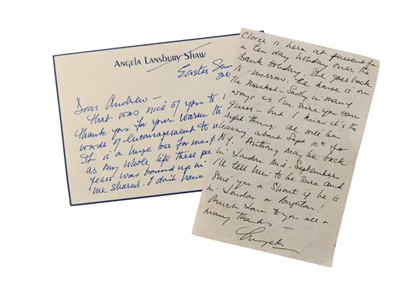 ANGELA LANSBURY SHAW
Easter Sun
Dear Andrew —
That was nice of you to
thank you for your warm
words of encouragement to
It is a huge loss for me
as my whole life these
years was bound up in
we shared. I don't have
is here at present for
a ten day holiday over the
Bank Holiday. She goes back
to-morrow. The house is on
the market — Sadly in many
ways as I'm sure you can
guess — but I know it's the
right thing. We will be
leaving about Sept 10th for
N.Y. Anthony may be back
in London mid-September
I'll tell him to be sure and
give you a shout if he is
in London or Brighton!
Much Love to you all &
many thanks —
Angela